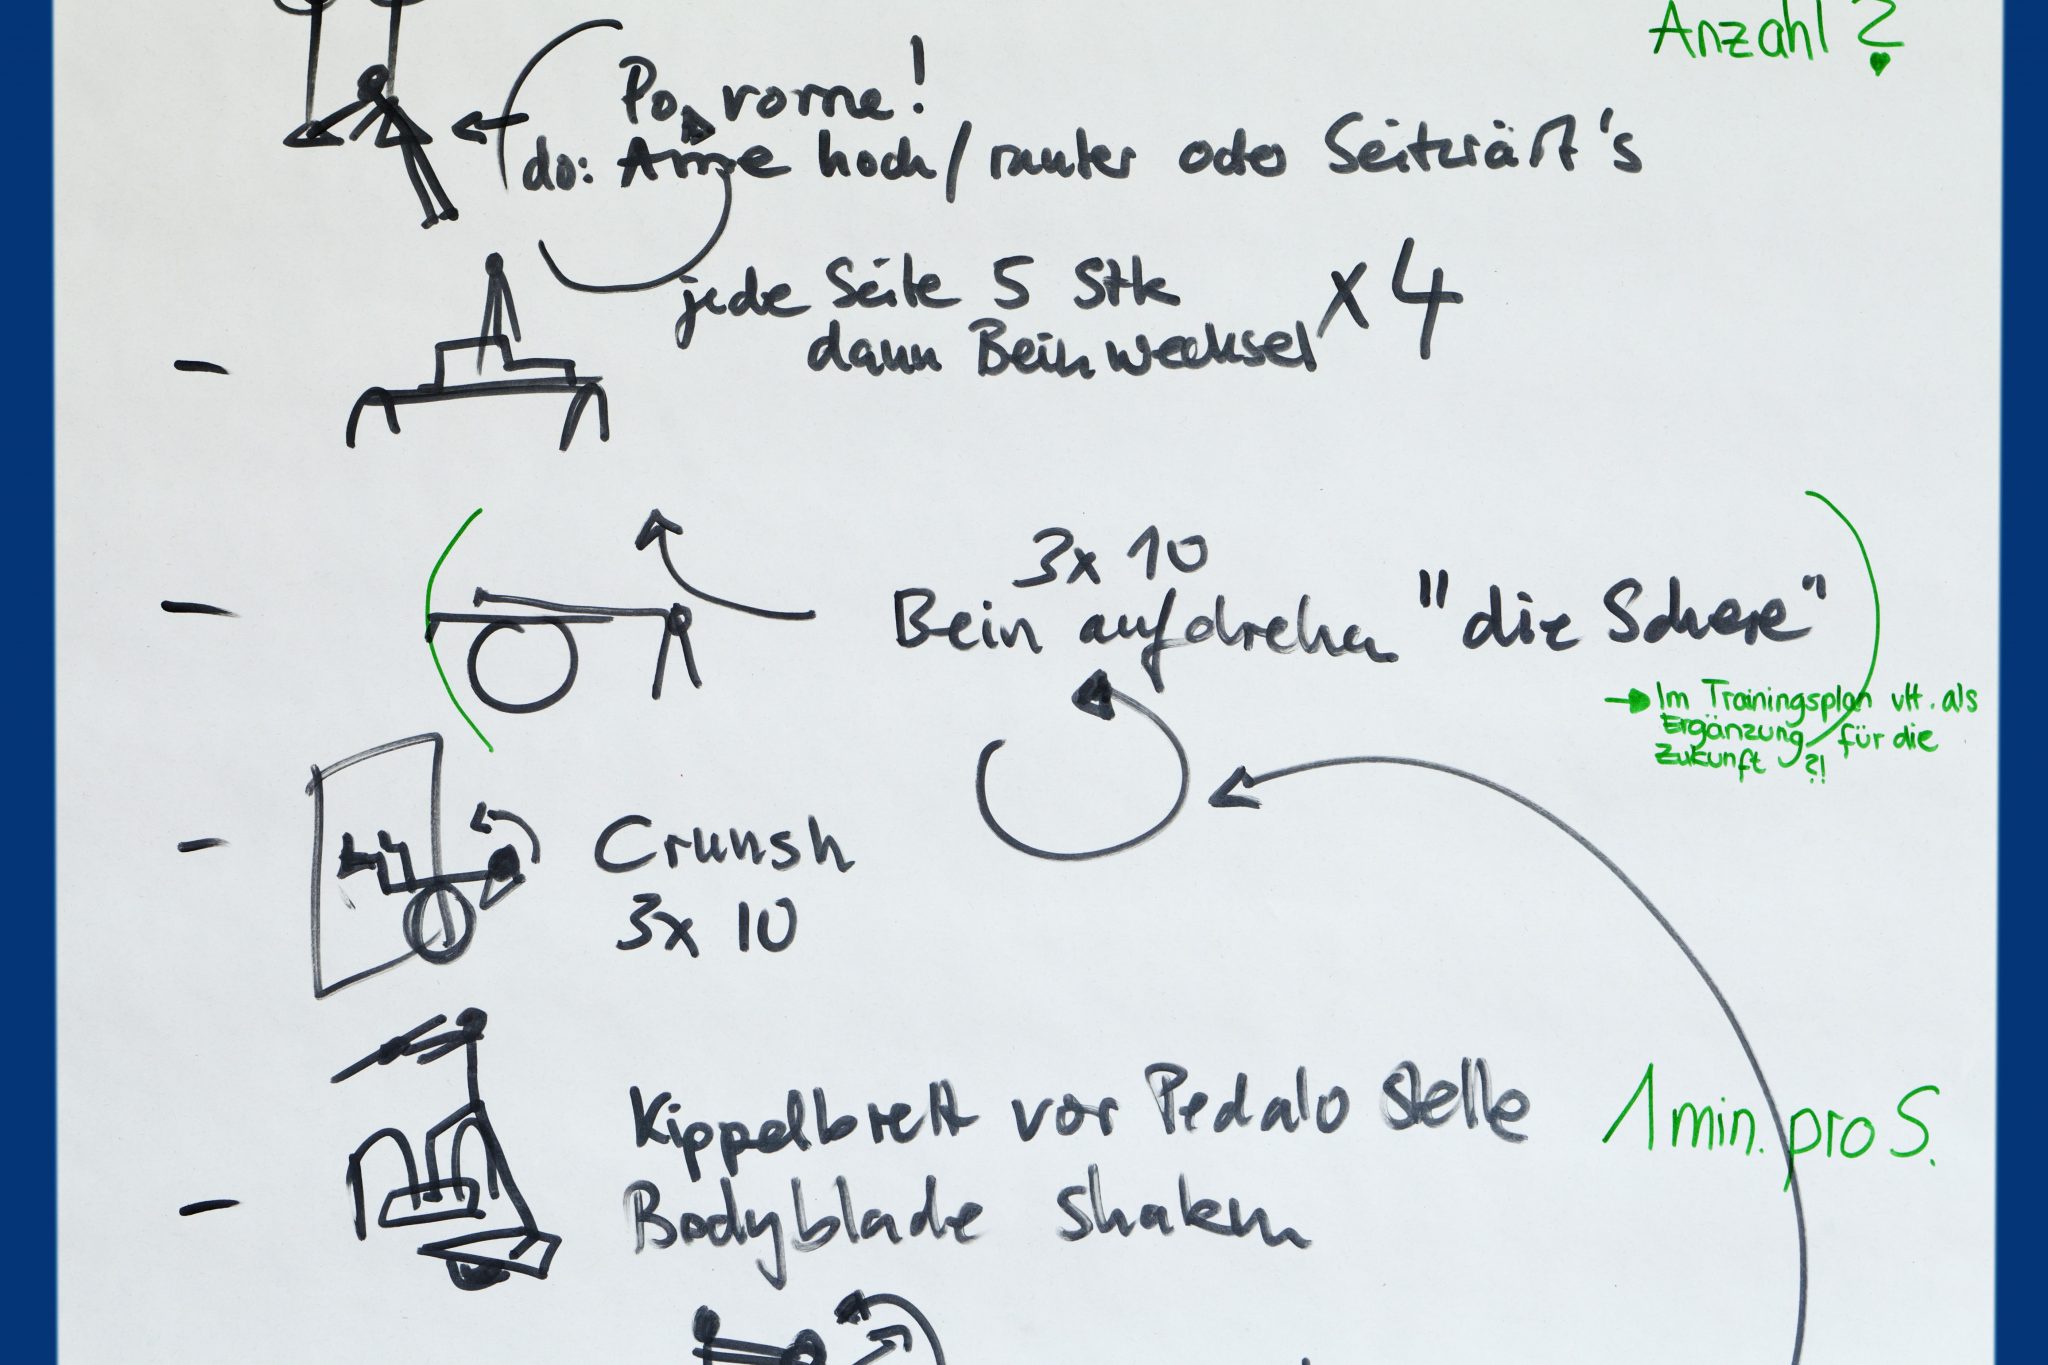 Anzahl ?
Po vorne!
do: Arme hoch / runter oder Seitkräft's
jede Seite 5 Stk
dann Beinwechsel x 4
3x 10
Bein aufdrehen "die Schere"
→ Im Trainingsplan vll. als
Ergänzung für die
Zukunft ?!
Crunsh
3x 10
Kippelbrett vor Pedalo Stelle
1 min. pro S.
Bodyblade shaken